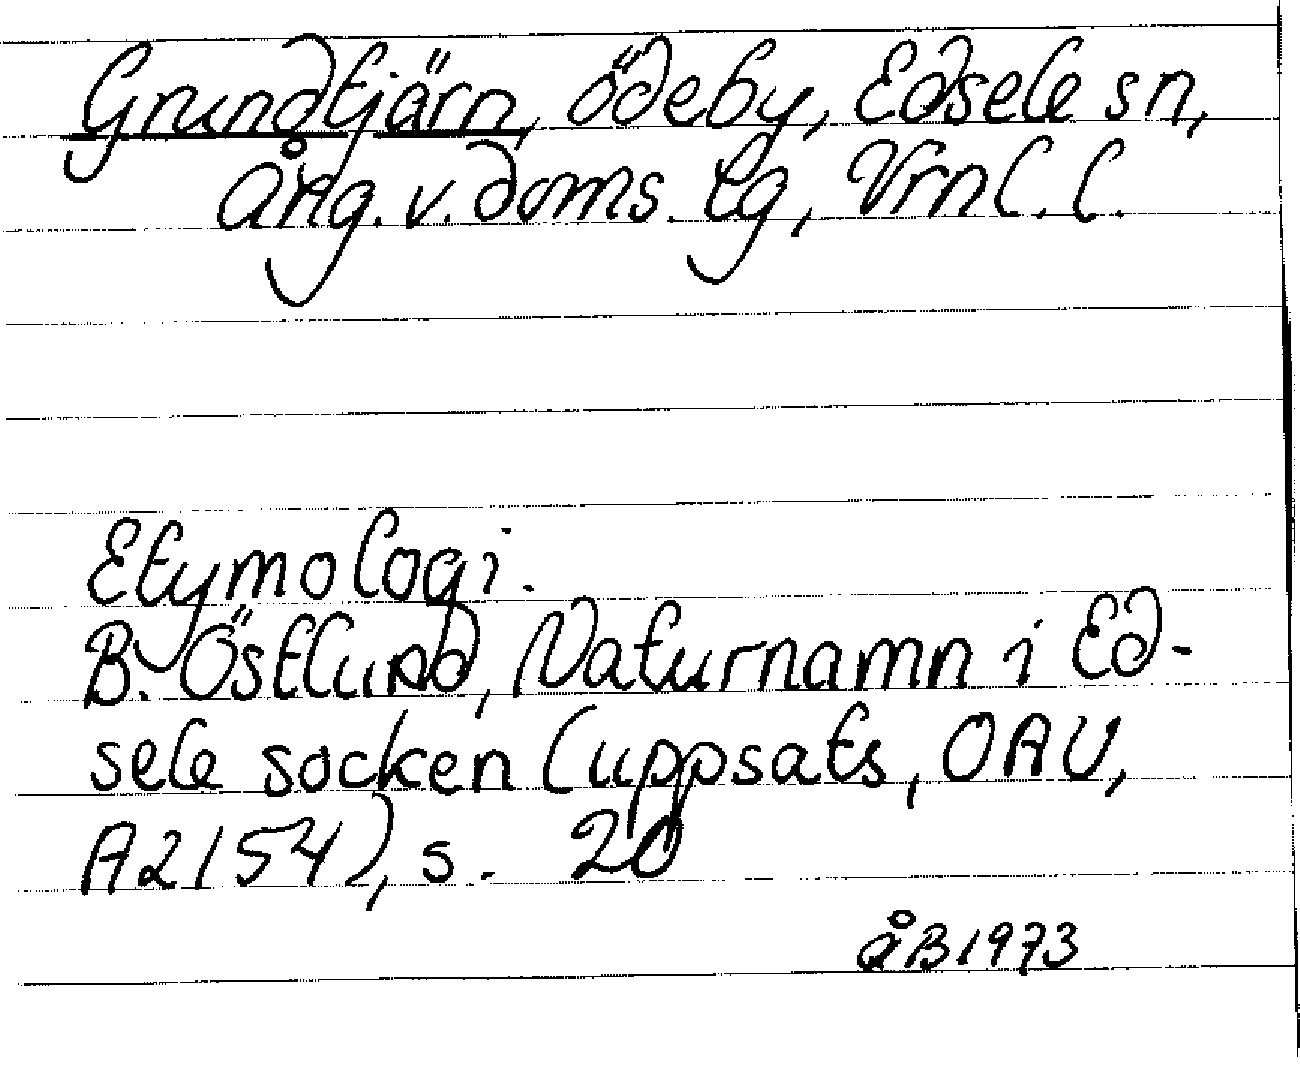 Grundtjärn, ödeby, Edsele sn,
Ång. v. doms. lg, Vrnl. l.
Etymologi.
B. Östlund, Naturnamn i Ed-
sele socken (uppsats, OAU,
A2154), s. 20
åB1973